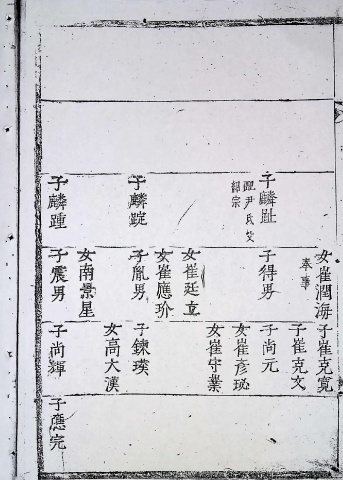 子麟趾
子麟踵
女崔潤海
奉事
子得男
女崔廷立
女崔應玠
子胤男
女南景星
子震男
子崔克寬
子崔克文
子尚元
女崔彦珌
女崔守業
子鍊璞
女高大漢
子尚輝
子應完